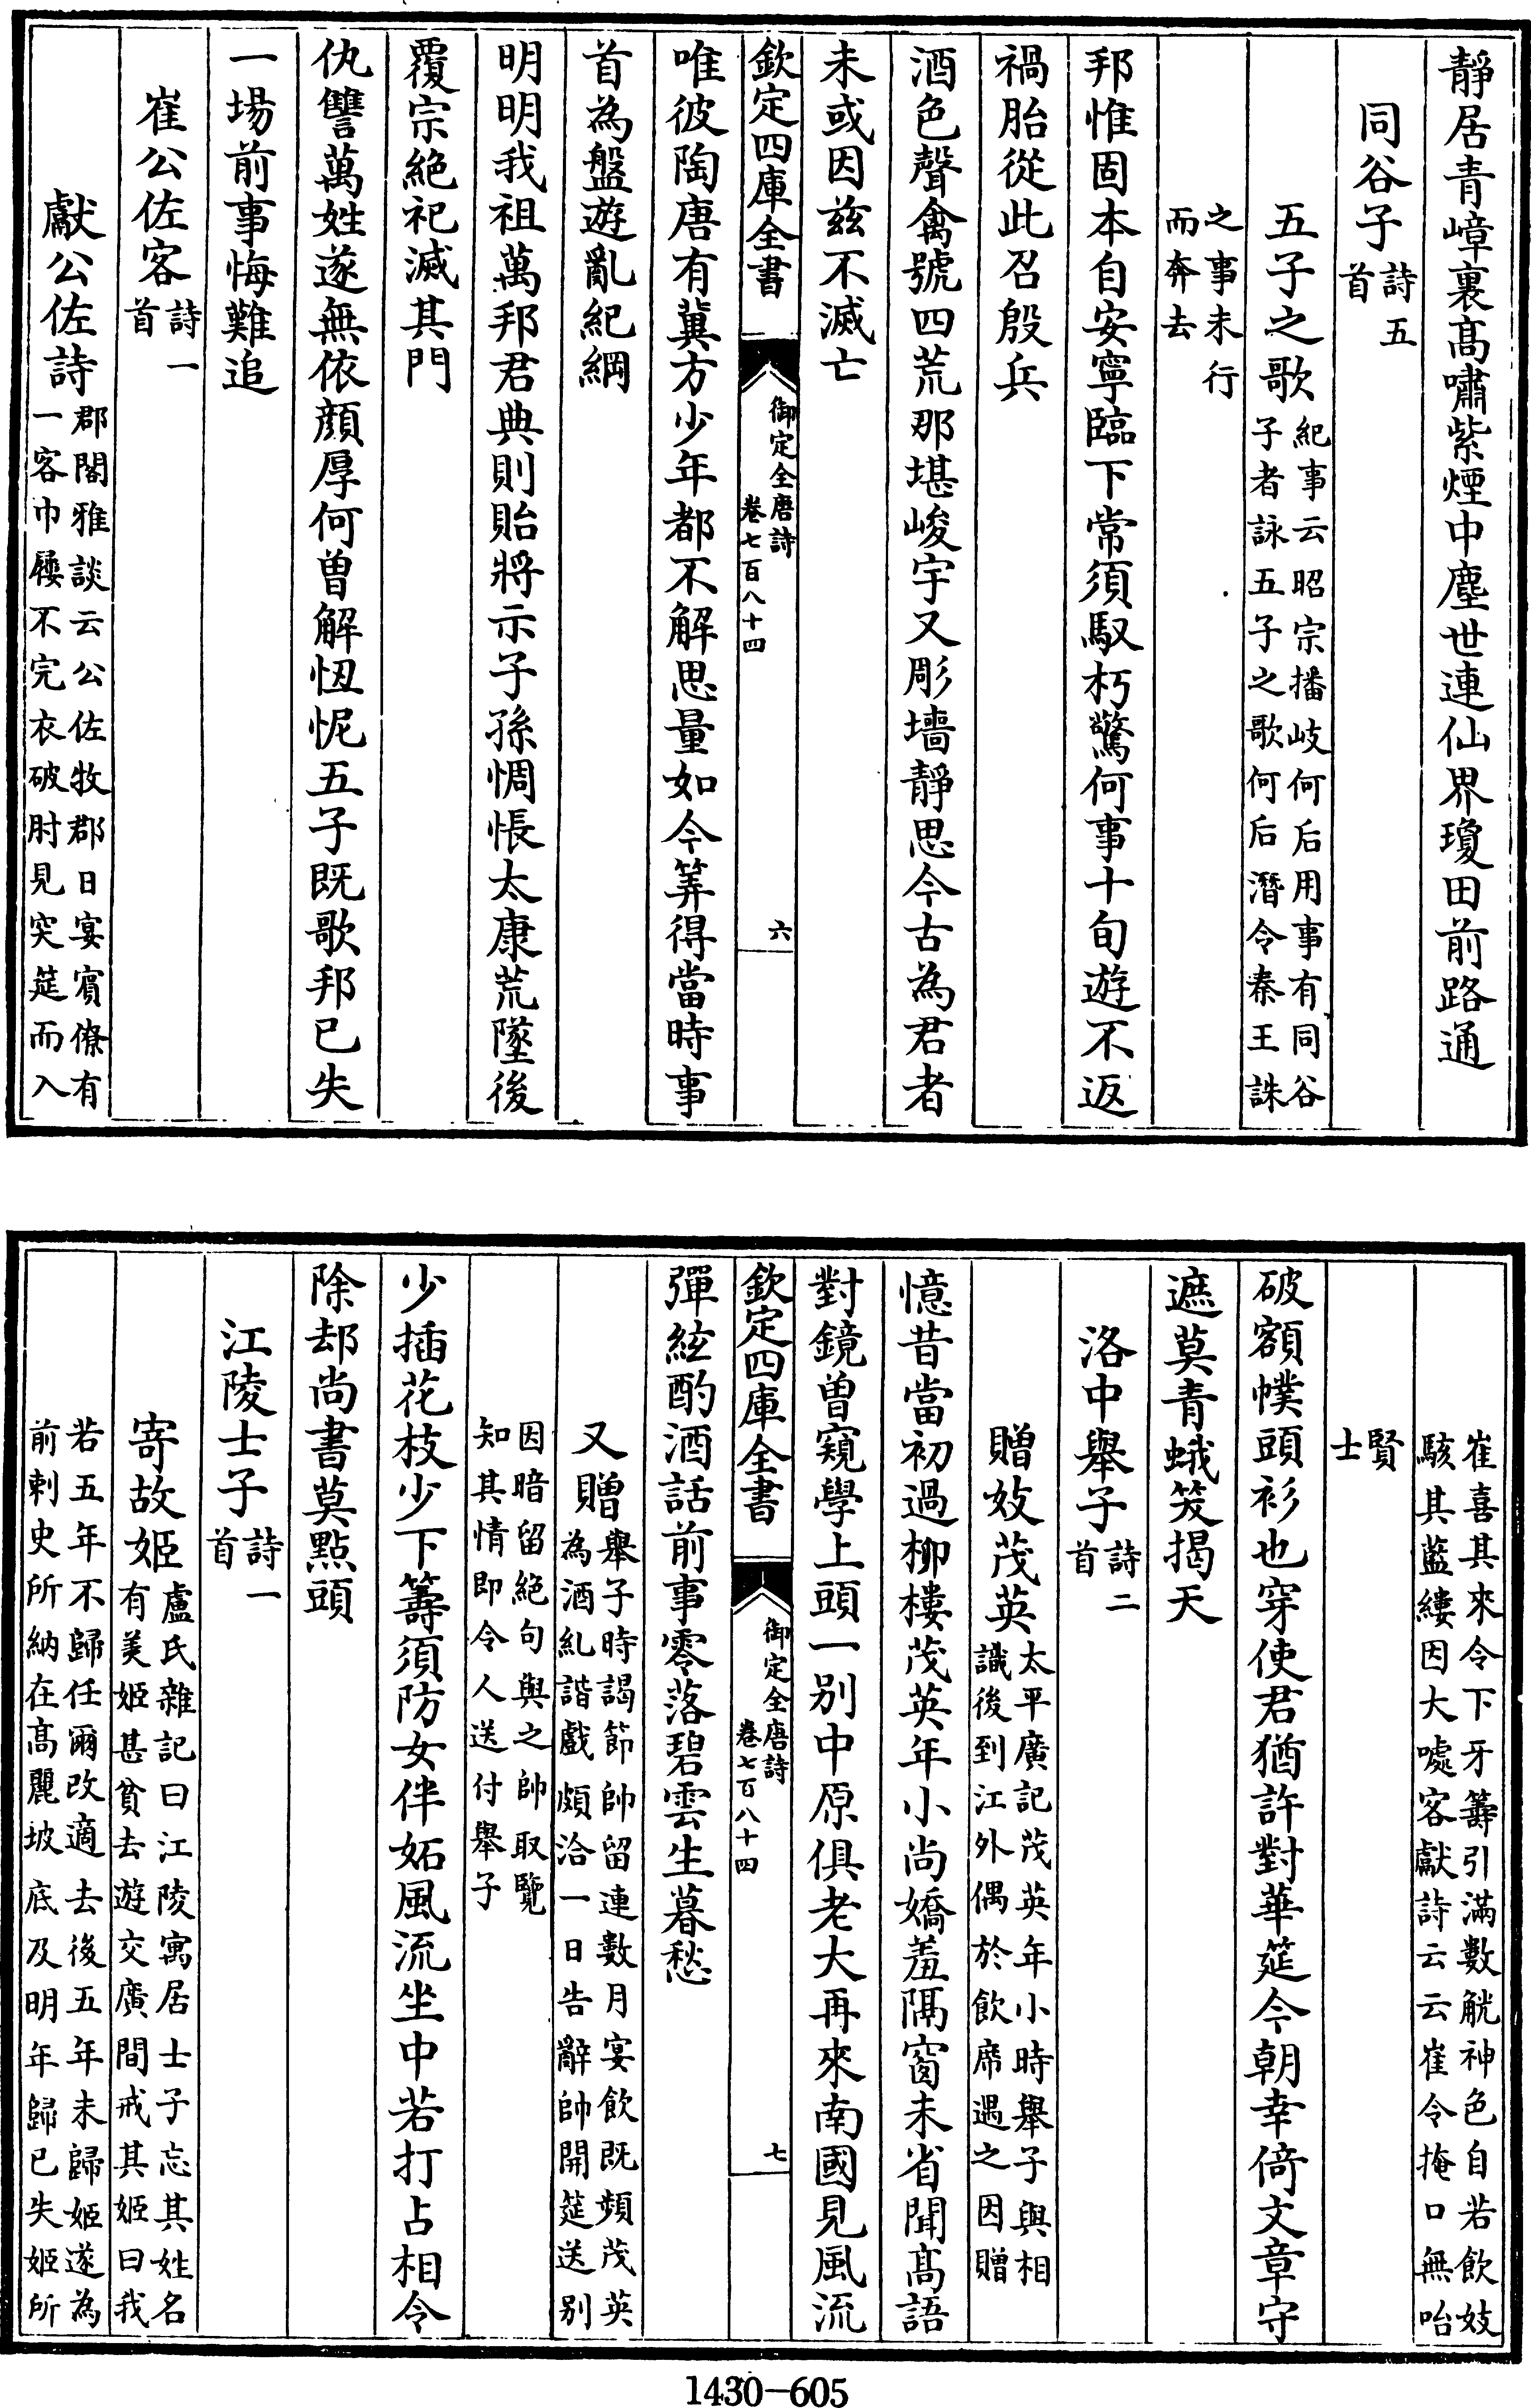 靜居青嶂裏高嘯紫煙中塵世連仙界瓊田前路通
同谷子詩五首
五子之歌紀事云昭宗播岐何后用事有同谷子者詠五子之歌何后潛令秦王誅
之事未行而奔去
邦惟固本自安寧臨下常須馭朽驚何事十旬遊不返
禍胎從此召殷兵
酒色聲禽號四荒那堪峻宇又彫墻靜思今古為君者
未或因茲不滅亡
欽定四庫全書 御定全唐詩卷七百八十四 六
唯彼陶唐有冀方少年都不解思量如今筭得當時事
首為盤遊亂紀綱
明明我祖萬邦君典則貽將示子孫惆悵太康荒墜後
覆宗絶祀滅其門
仇讐萬姓遂無依顔厚何曽解忸怩五子既歌邦已失
一場前事悔難追
崔公佐客詩一首
獻公佐詩郡閣雅談云公佐牧郡日宴賓僚有一客巾屨不完衣破肘見突筵而入
崔喜其來令下牙籌引滿數觥神色自若飲妓駭其藍縷因大噱客獻詩云云崔令掩口無咍
賢士
破額幞頭衫也穿使君猶許對華筵今朝幸倚文章守
遮莫青蛾笑揭天
洛中舉子詩二首
贈妓茂英太平廣記茂英年小時舉子與相識後到江外偶於飲席遇之因贈
憶昔當初過柳樓茂英年小尚嬌羞隔窗未省聞髙語
對鏡曽窺學上頭一别中原俱老大再來南國見風流
欽定四庫全書 御定全唐詩卷七百八十四 七
彈絃酌酒話前事零落碧雲生暮愁
又贈舉子時謁節帥留連數月宴飲既頻茂英為酒糺諧戲頗洽一日告辭帥開筵送别
因暗留絶句與之帥取覽知其情即令人送付舉子
少插花枝少下籌須防女伴妬風流坐中若打占相令
除却尚書莫點頭
江陵士子詩一首
寄故姬盧氏雜記曰江陵寓居士子忘其姓名有美姬甚貧去遊交廣間戒其姬曰我
若五年不歸任爾改適去後五年未歸姬遂為前刺史所納在髙麗坡底及明年歸已失姬所
1430-605